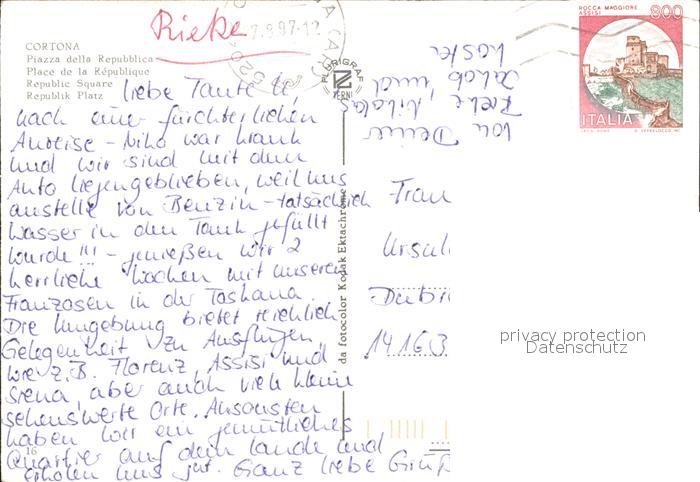 Rieke
7.8.97-12
ROCCA MAGGIORE
ASSISI
800
ITALIA
CORTONA
Piazza della Repubblica
Place de la République
Republic Square
Republik Platz
PLURIGRAF
TERNI
liebe Tante U,
nach einer fürchterlichen
Anreise - Niko war krank
und wir sind mit dem
Auto liegengeblieben, weil uns
anstelle von Benzin - tatsächlich
Wasser in den Tank gefüllt
wurde !!! - genießen wir 2
herrliche Wochen mit unseren
Franzosen in der Toskana.
Die Umgebung bietet reichlich
Gelegenheit zu Ausflügen,
wie z.B. Florenz, Assisi und
Siena, aber auch viele kleine
sehenswerte Orte. Ansonsten
haben wir ein gemütliches
Quartier auf dem Lande und
erholen uns gut. Ganz liebe Grüß
16
von Deiner
Rieke, Nikolas,
Jakob und
da fotocolor Kodak Ektachrome
Frau
Ursul
14163
privacy protection
Datenschutz